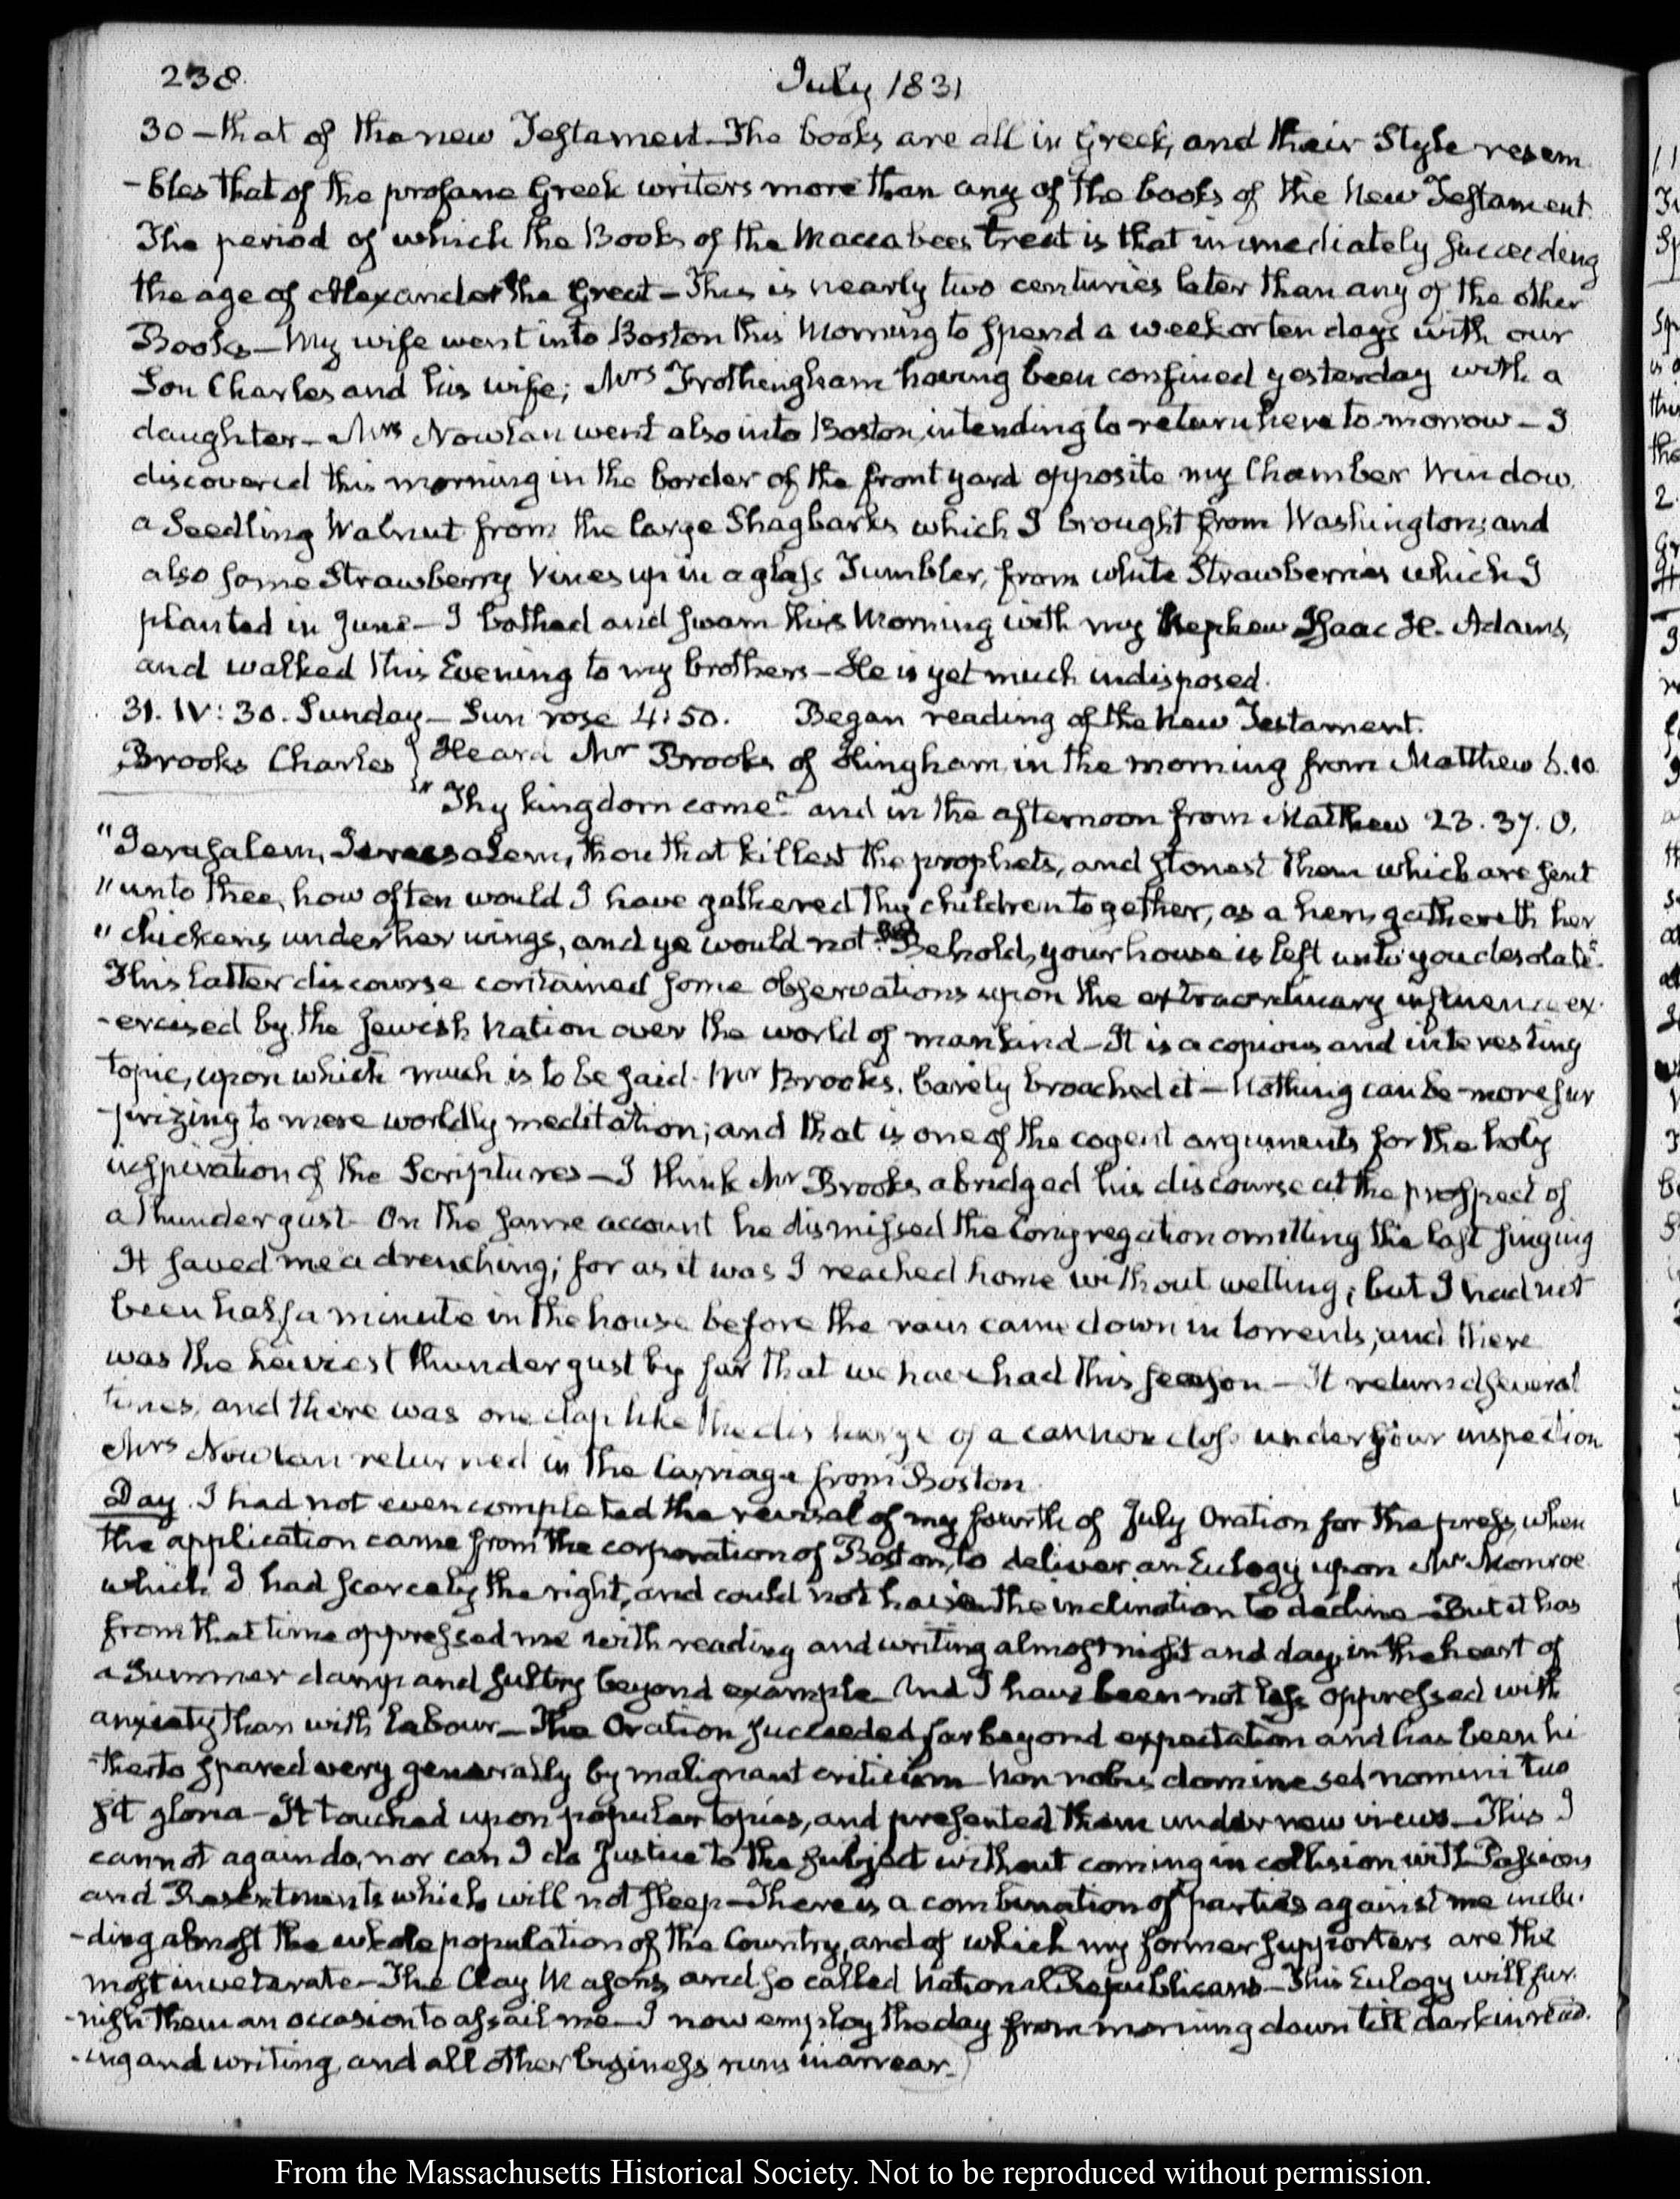 238.
July 1831
30 – that of the new Testament – The books are all in Greek, and their Style resem
-bles that of the profane Greek writers more than any of the books of the New Testament.
The period of which the Books of the Maccabees treat is that immediately succeeding
the age of Alexander the Great – This is nearly two centuries later than any of the other
Books – My wife went into Boston this Morning to spend a week or ten days with our
Son Charles and his wife; Mrs Frothingham having been confined yesterday with a
daughter – Mrs Nowlan went also into Boston, intending to return here to-morrow – I
discovered this morning in the border of the front yard opposite my Chamber Window.
a Seedling Walnut from the large Shagbarks which I brought from Washington; and
also some Strawberry Vines up in a glass Tumbler, from white Strawberries which I
planted in June – I bathed and swam this Morning with my Nephew Isaac H. Adams,
and walked this Evening to my brothers – He is yet much indisposed.
31. IV: 30. Sunday – Sun rose 4:50. Began reading of the New Testament.
Brooks Charles } Heard Mr Brooks of Hingham, in the morning from Matthew 6.10.
"Thy kingdom come" and in the afternoon from Matthew 23. 37. O,
"Jerusalem, Jerusalem, thou that killest the prophets, and stonest them which are sent
"unto thee, how often would I have gathered thy children together, as a hen gathereth her
"chickens under her wings, and ye would not. Behold, your house is left unto you desolate".
This latter discourse contained some observations upon the extraordinary influence ex-
-ercised by the Jewish Nation over the world of mankind – It is a copious and interesting
topic, upon which much is to be said. Mr Brooks. barely broached it – Nothing can be more sur
-prizing to mere worldly meditation; and that is one of the cogent arguments for the holy
inspiration of the Scriptures – I think Mr Brooks abridged his discourse at the prospect of
a thunder gust. On the same account he dismissed the Congregation omitting the last singing
It saved me a drenching; for as it was I reached home without wetting; but I had not
been half a minute in the house before the rain came down in torrents; and there
was the heaviest thunder gust by far that we have had this season – It returned several
times, and there was one clap like the discharge of a cannon close under your inspection
Mrs Nowlan returned in the Carriage from Boston.
Day. I had not even completed the revisal of my fourth of July Oration for the press, when
the application came from the corporation of Boston, to deliver an Eulogy upon Mr Monroe
which I had scarcely the right, and could not have the inclination to decline – But it has
from that time oppressed me with reading and writing almost night and day, in the heart of
a Summer damp and sultry beyond example And I have been not less oppressed with
anxiety than with labour – The Oration succeeded far beyond expectation and has been hi
-therto spared very generally by malignant criticism – Non nobis domine sed nomini tuo
sit gloria – It touched upon popular topics, and presented them under new views – This I
cannot again do, nor can I do Justice to the subject without coming in collision with Passions
and Resentments which will not sleep – There is a combination of parties against me inclu-
-ding almost the whole population of the Country, and of which my former supporters are the
most inveterate – The Clay Masons and so called National Republicans – This Eulogy will fur-
-nish them an occasion to assail me – I now employ the day from morning down till dark in read-
-ing and writing, and all other business runs in arrear.
From the Massachusetts Historical Society. Not to be reproduced without permission.